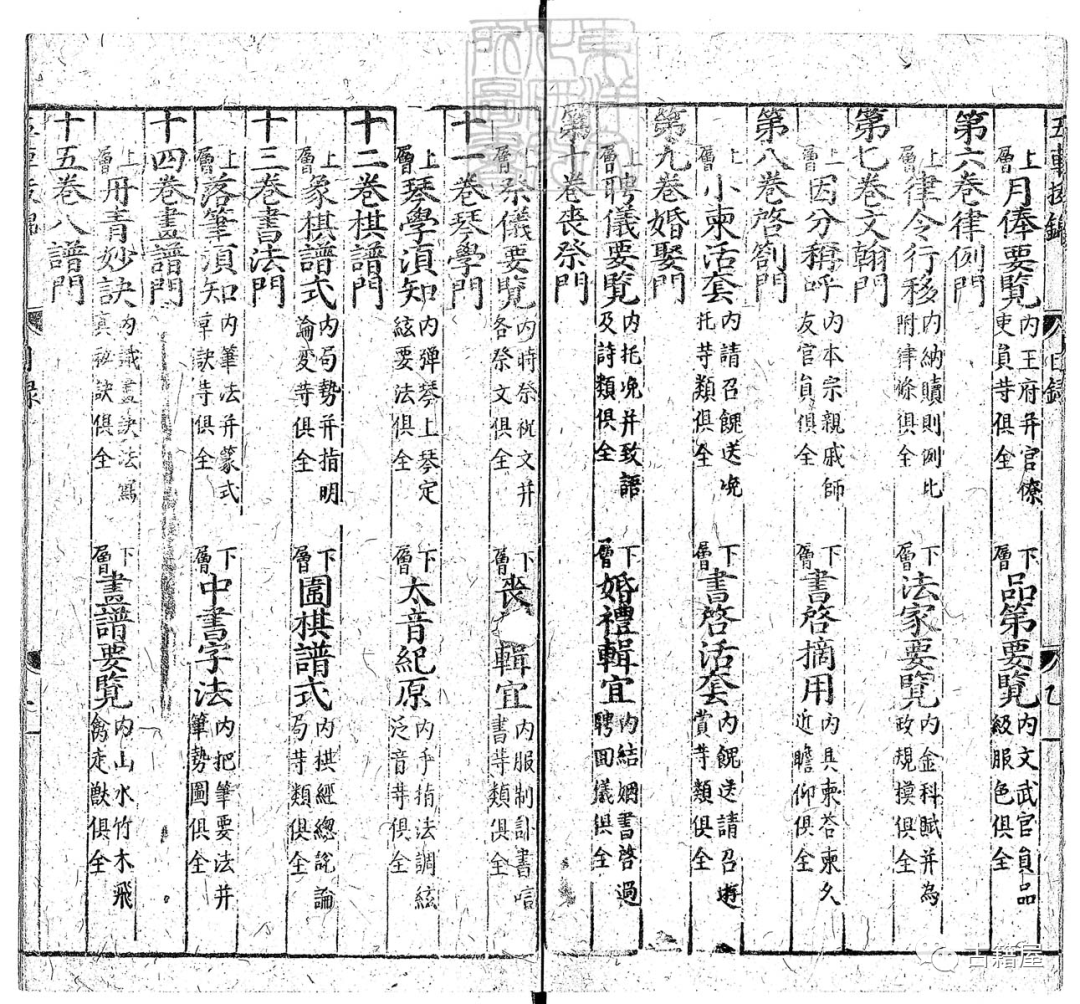 五車拔錦 目錄
上層 月俸要覽 內王府并官僚吏員等俱全 下層 品第要覽 內文武官員品級服色俱全
第六卷律例門
上層 律令行移 內納贖則例比附律條俱全 下層 法家要覽 內金科賦并為政規模俱全
第七卷文翰門
上層 因分稱呼 內本宗親戚師友官員俱全 下層 書啓摘用 內具柬答柬久近瞻仰俱全
第八卷啓劄門
上層 小柬活套 內請召餽送晚托等類俱全 下層 書啓活套 內餽送請召遊賞等類俱全
第九卷婚娶門
上層 聘儀要覽 內托晚并致語及詩類俱全 下層 婚禮輯宜 內結姻書啓過聘回儀俱全
第十卷喪祭門
上層 祭儀要覽 內時祭祝文并各祭文俱全 下層 喪輯宜 內服制訃書唁書等類俱全
十一卷琴學門
上層 琴學須知 內彈琴上琴定絃要法俱全 下層 太音紀原 內手指法調絃泛音等俱全
十二卷棋譜門
上層 象棋譜式 內局勢并指明論变等俱全 下層 圍棋譜式 內棋經總說論局等類俱全
十三卷書法門
上層 落筆須知 內筆法并篆式草訣等俱全 下層 中書字法 內把筆要法并筆勢圖俱全
十四卷畫譜門
上層 丹青妙訣 內識畫訣法寫真秘訣俱全 下層 畫譜要覽 內山水竹木飛禽走獸俱全
十五卷八譜門
古籍屋